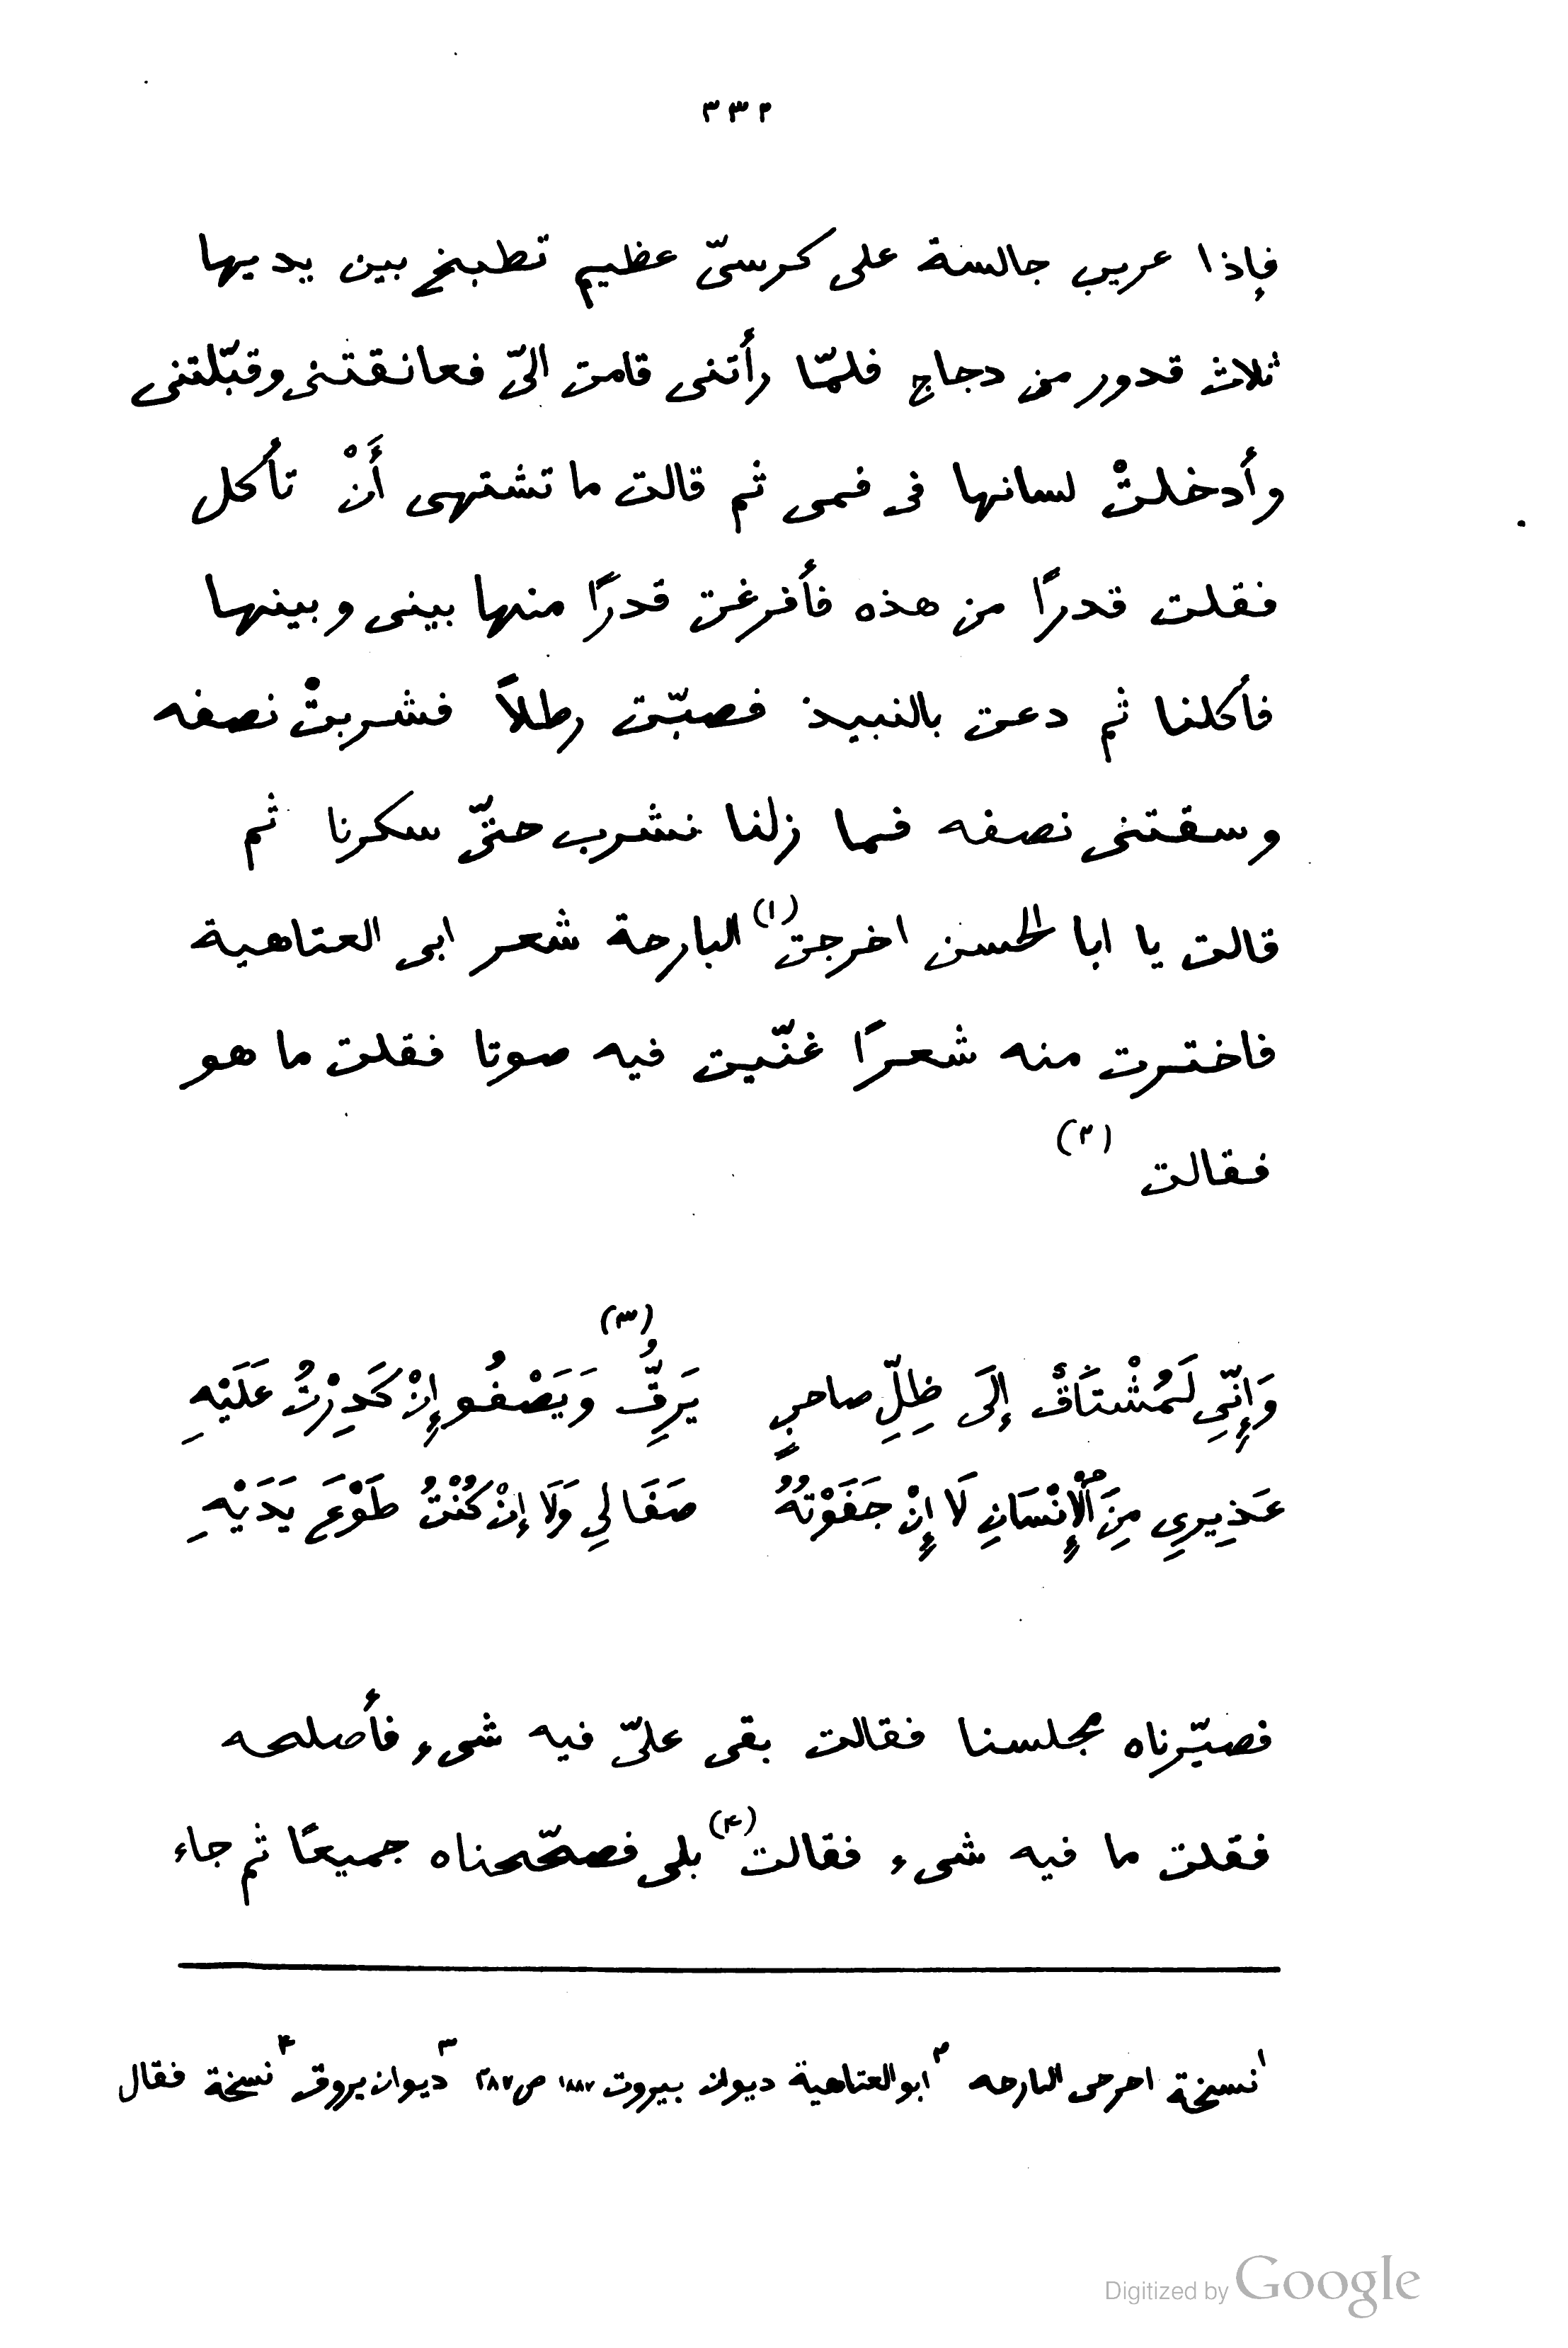 ٣٣٢
فإذا عريب جالسة على كرسىّ عظيم تطبخ بين يديها
ثلاث قدور من دجاج فلمّا رأتنى قامت الىّ فعانقتنى وقبّلتنى
وأدخلتْ لسانها فى فمى ثم قالت ما تشتهى أَنْ تأكل
فقلت قدرًا من هذه فأفرغت قدرًا منها بينى وبينها
فأكلنا ثم دعت بالنبيذ فصبّت رطلاً فشربتْ نصفه
وسقتنى نصفه فما زلنا نشرب حتّى سكرنا ثم
قالت يا ابا الحسن اخرجت(١) البارحة شعر ابى العتاهية
فاخترت منه شعرًا غنّيت فيه صوتا فقلت ما هو
فقالت (٢)
وَإِنِّي لَمُشْتَاقٌ إِلَى ظِلِّ صاحبٍ يَرِقُّ(٣) وَيَصْفُو إِنْ كَدِرْتُ عَلَيْهِ
عَذِيرِي مِنَ ٱلْإِنْسَانِ لَا إِنْ جَفَوْتُهُ صَفَا لِي وَلَا إِنْ كُنْتُ طَوْعَ يَدَيْهِ
فصيّرناه مجلسنا فقالت بقى علىّ فيه شىء فأصلحه
فقلت ما فيه شىء فقالت(٤) بلى فصحّحناه جميعًا ثم جاء
١ نسخة احرحى البارحه ٢ ابو العتاهية ديوان بيروت ١٨٨٧ ص ٢٨٧ ٣ ديوان يروق ٤ نسخة فقال
Digitized by Google